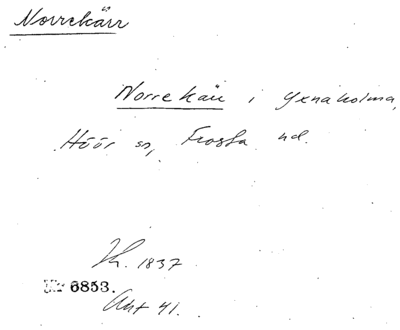 Norrekärr
Norrekärr i Yxnaholma,
Höör sn, Frosta hd.
1837
Nr 6853.
Akt 41.